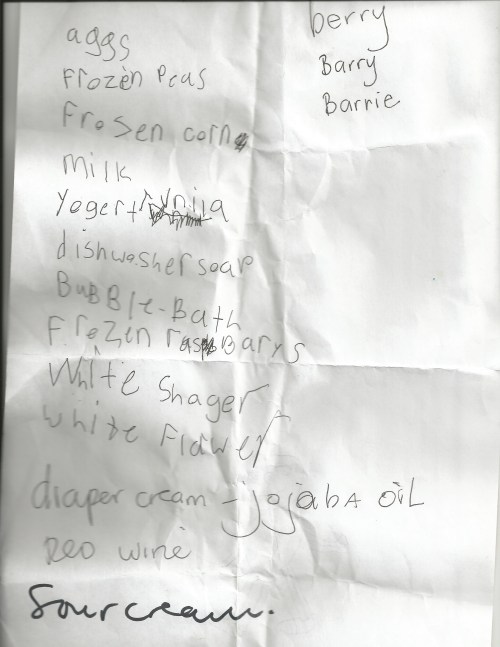 aggs
Frozen Peas
Frosen corn
milk
Yogert
dishwasher soap
BuBBle-Bath
Frozen rasBarys
White Shager
White Flawer
diaper cream - jojaba oil
Reo wine
Sour cream.
berry
Barry
Barrie